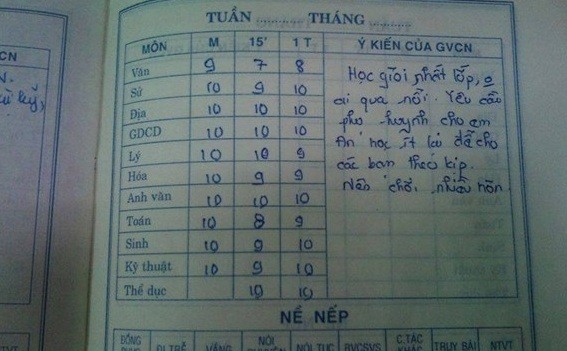 TUẦN THÁNG
MÔN M 15' 1 T Ý KIẾN CỦA GVCN
Văn 9 7 8
Sử 10 9 10
Địa 10 10 10
GDCD 10 10 10
Lý 10 10 9
Hóa 10 9 9
Anh văn 10 10 10
Toán 10 8 9
Sinh 10 9 10
Kỹ thuật 10 9 10
Thể dục 10 10
Học giỏi nhất lớp, o
ai qua nổi. Yêu cầu
phụ huynh cho em
Ân học ít lại để cho
các bạn theo kịp.
Nên chơi, nhiều hơn
NỀ NẾP
ĐỒNG ĐI TRỄ VẮNG NÓI NÓI TỤC BVCSVS C.TÁC TRUY BÀI NTVT
CN